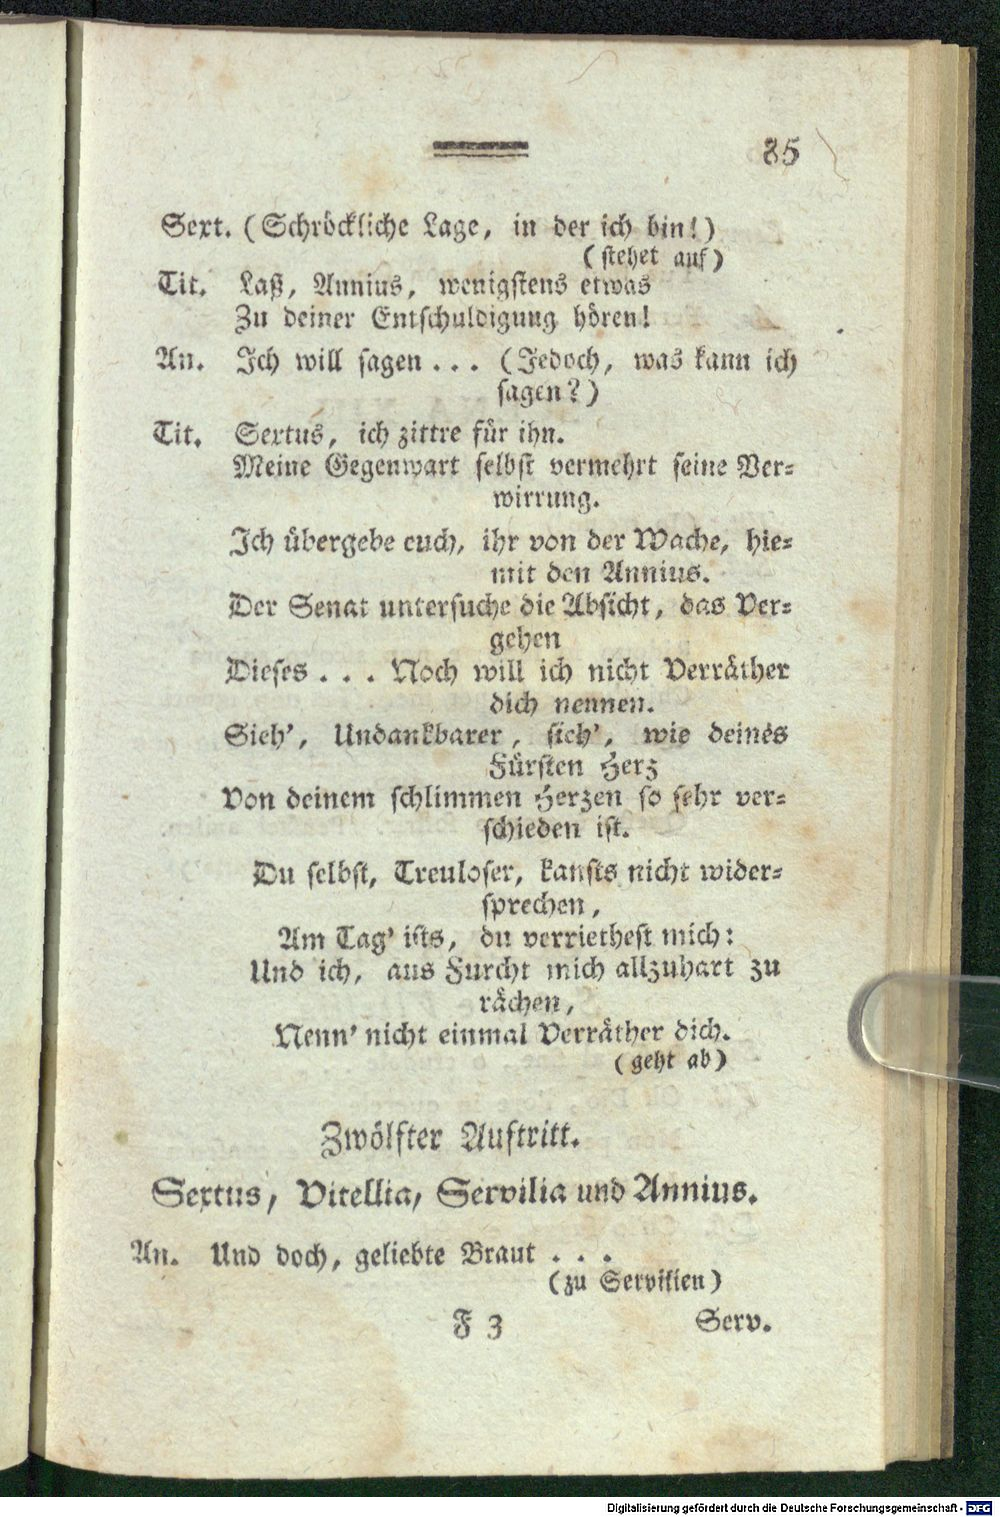 85
Sext. (Schröckliche Lage, in der ich bin!)
(stehet auf)
Tit. Laß, Annius, wenigstens etwas
Zu deiner Entschuldigung hören!
An. Ich will sagen . . . (Jedoch, was kann ich
sagen?)
Tit. Sextus, ich zittre für ihn.
Meine Gegenwart selbst vermehrt seine Ver-
wirrung.
Ich übergebe euch, ihr von der Wache, hie-
mit den Annius.
Der Senat untersuche die Absicht, das Ver-
gehen
Dieses . . . Noch will ich nicht Verräther
dich nennen.
Sieh', Undankbarer, sieh', wie deines
Fürsten Herz
Von deinem schlimmen Herzen so sehr ver-
schieden ist.
Du selbst, Treuloser, kansts nicht wider-
sprechen,
Am Tag' ists, du verriethest mich:
Und ich, aus Furcht mich allzuhart zu
rächen,
Nenn' nicht einmal Verräther dich.
(geht ab)
Zwölfter Auftritt.
Sextus, Vitellia, Servilia und Annius.
An. Und doch, geliebte Braut . . .
(zu Servilien)
F 3
Serv.
Digitalisierung gefördert durch die Deutsche Forschungsgemeinschaft - DFG